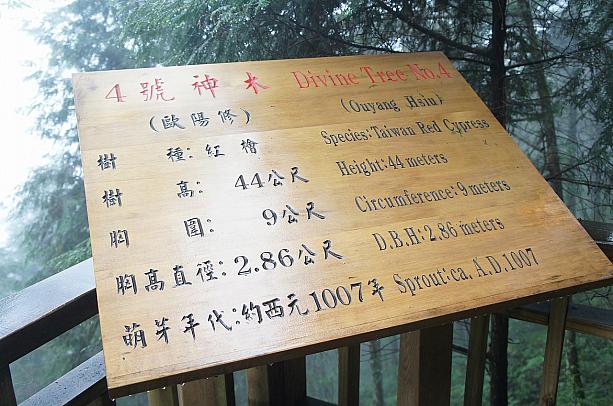 4號神木 Divine Tree No.4
(歐陽修) (Ouyang Hsiu)
樹種:紅檜 Species:Taiwan Red Cypress
樹高:44公尺 Height:44 meters
胸圍:9公尺 Circumference:9 meters
胸高直徑:2.86公尺 D.B.H:2.86 meters
萌芽年代:約西元1007年 Sprout:ca. A.D.1007